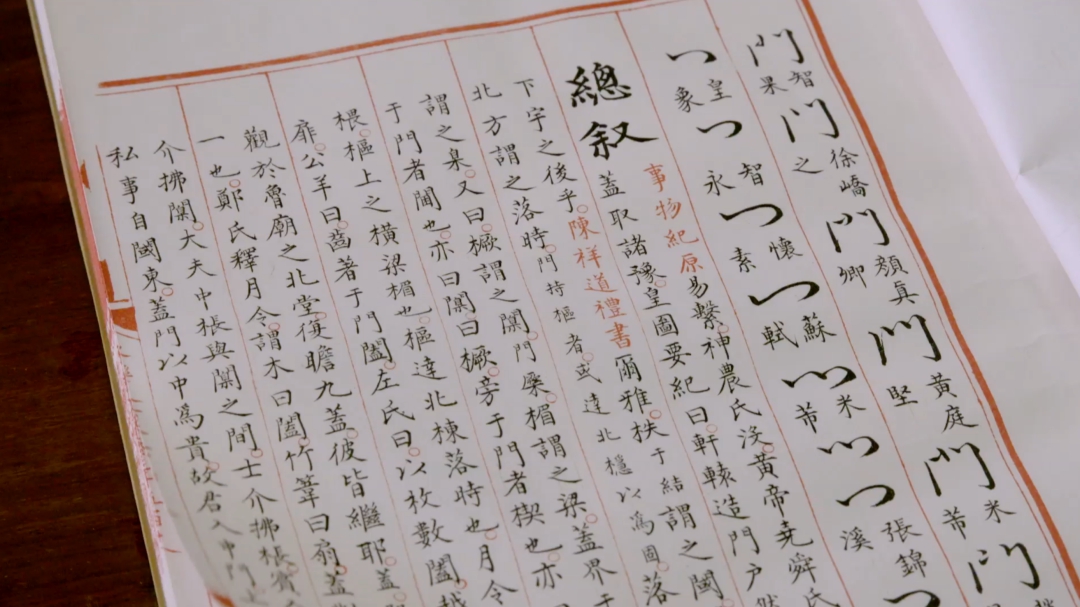 門 智果 門 徐嶠之 門 顏真卿 門 黃庭堅 門 米芾 門
皇象 智永 懷素 蘇軾 米芾 張錦溪
總叙
事物紀原易繫。神農氏沒。黃帝堯舜氏
蓋取諸豫。皇圖要紀曰。軒轅造門戶然
下宇之後乎。陳祥道禮書爾雅柣于結謂之閾
北方謂之落時。門持樞者。或達北穩以為固。落
謂之臬。又曰。橛謂之闑。門戾楣謂之梁。蓋界于
于門者闑也。亦曰闑。曰橛。旁于門者楔也。亦
棖。樞上之橫梁楣也。樞達北棟落時也。月令
扉。公羊曰。齒著于門闔。左氏曰。以枚數闔。越
觀於魯廟之北堂。復瞻九蓋。彼皆繼耶。蓋
一也。鄭氏釋月令。謂木曰闔。竹葦曰扇。蓋
介拂闑。大夫中棖與闑之間。士介拂棖。賓
私事自闑東。蓋門以中為貴。故君入中門